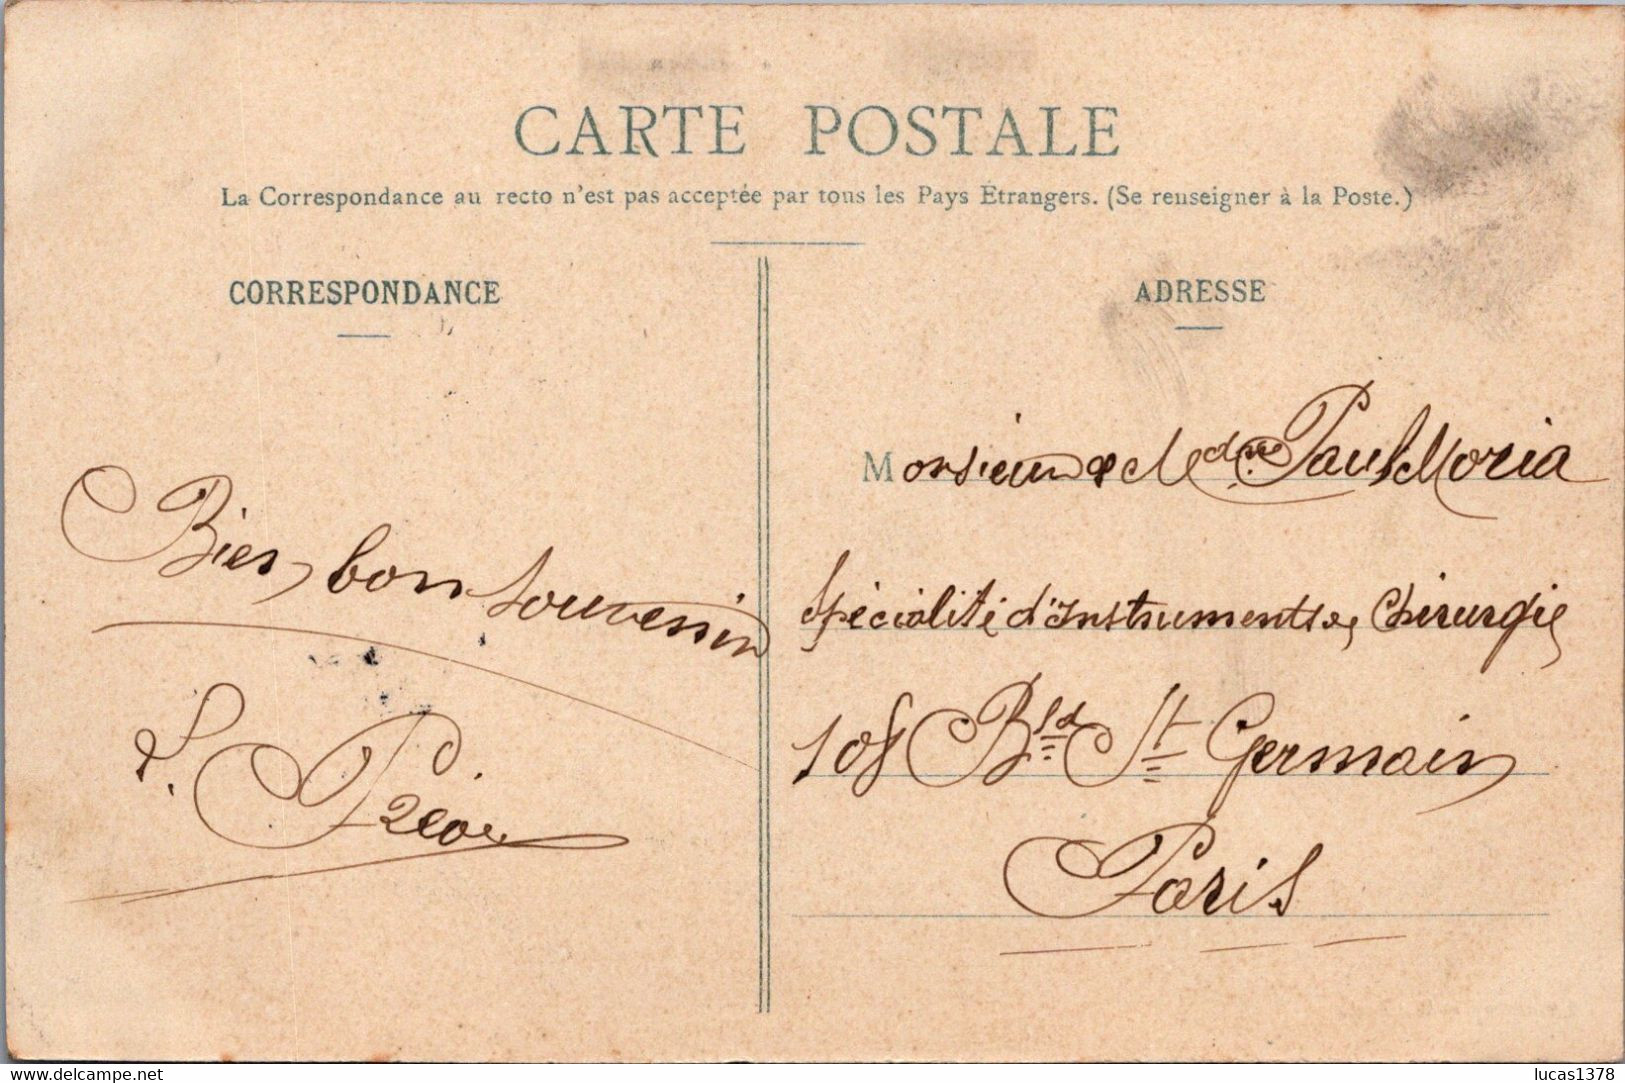 CARTE POSTALE
La Correspondance au recto n'est pas acceptée par tous les Pays Étrangers. (Se renseigner à la Poste.)
CORRESPONDANCE
Bien bon souvenir
ADRESSE
Monsieur & Mdme Paul Moria
Spécialité d'Instruments de Chirurgie
108 Bld St Germain
Paris
www.delcampe.net
lucas1378